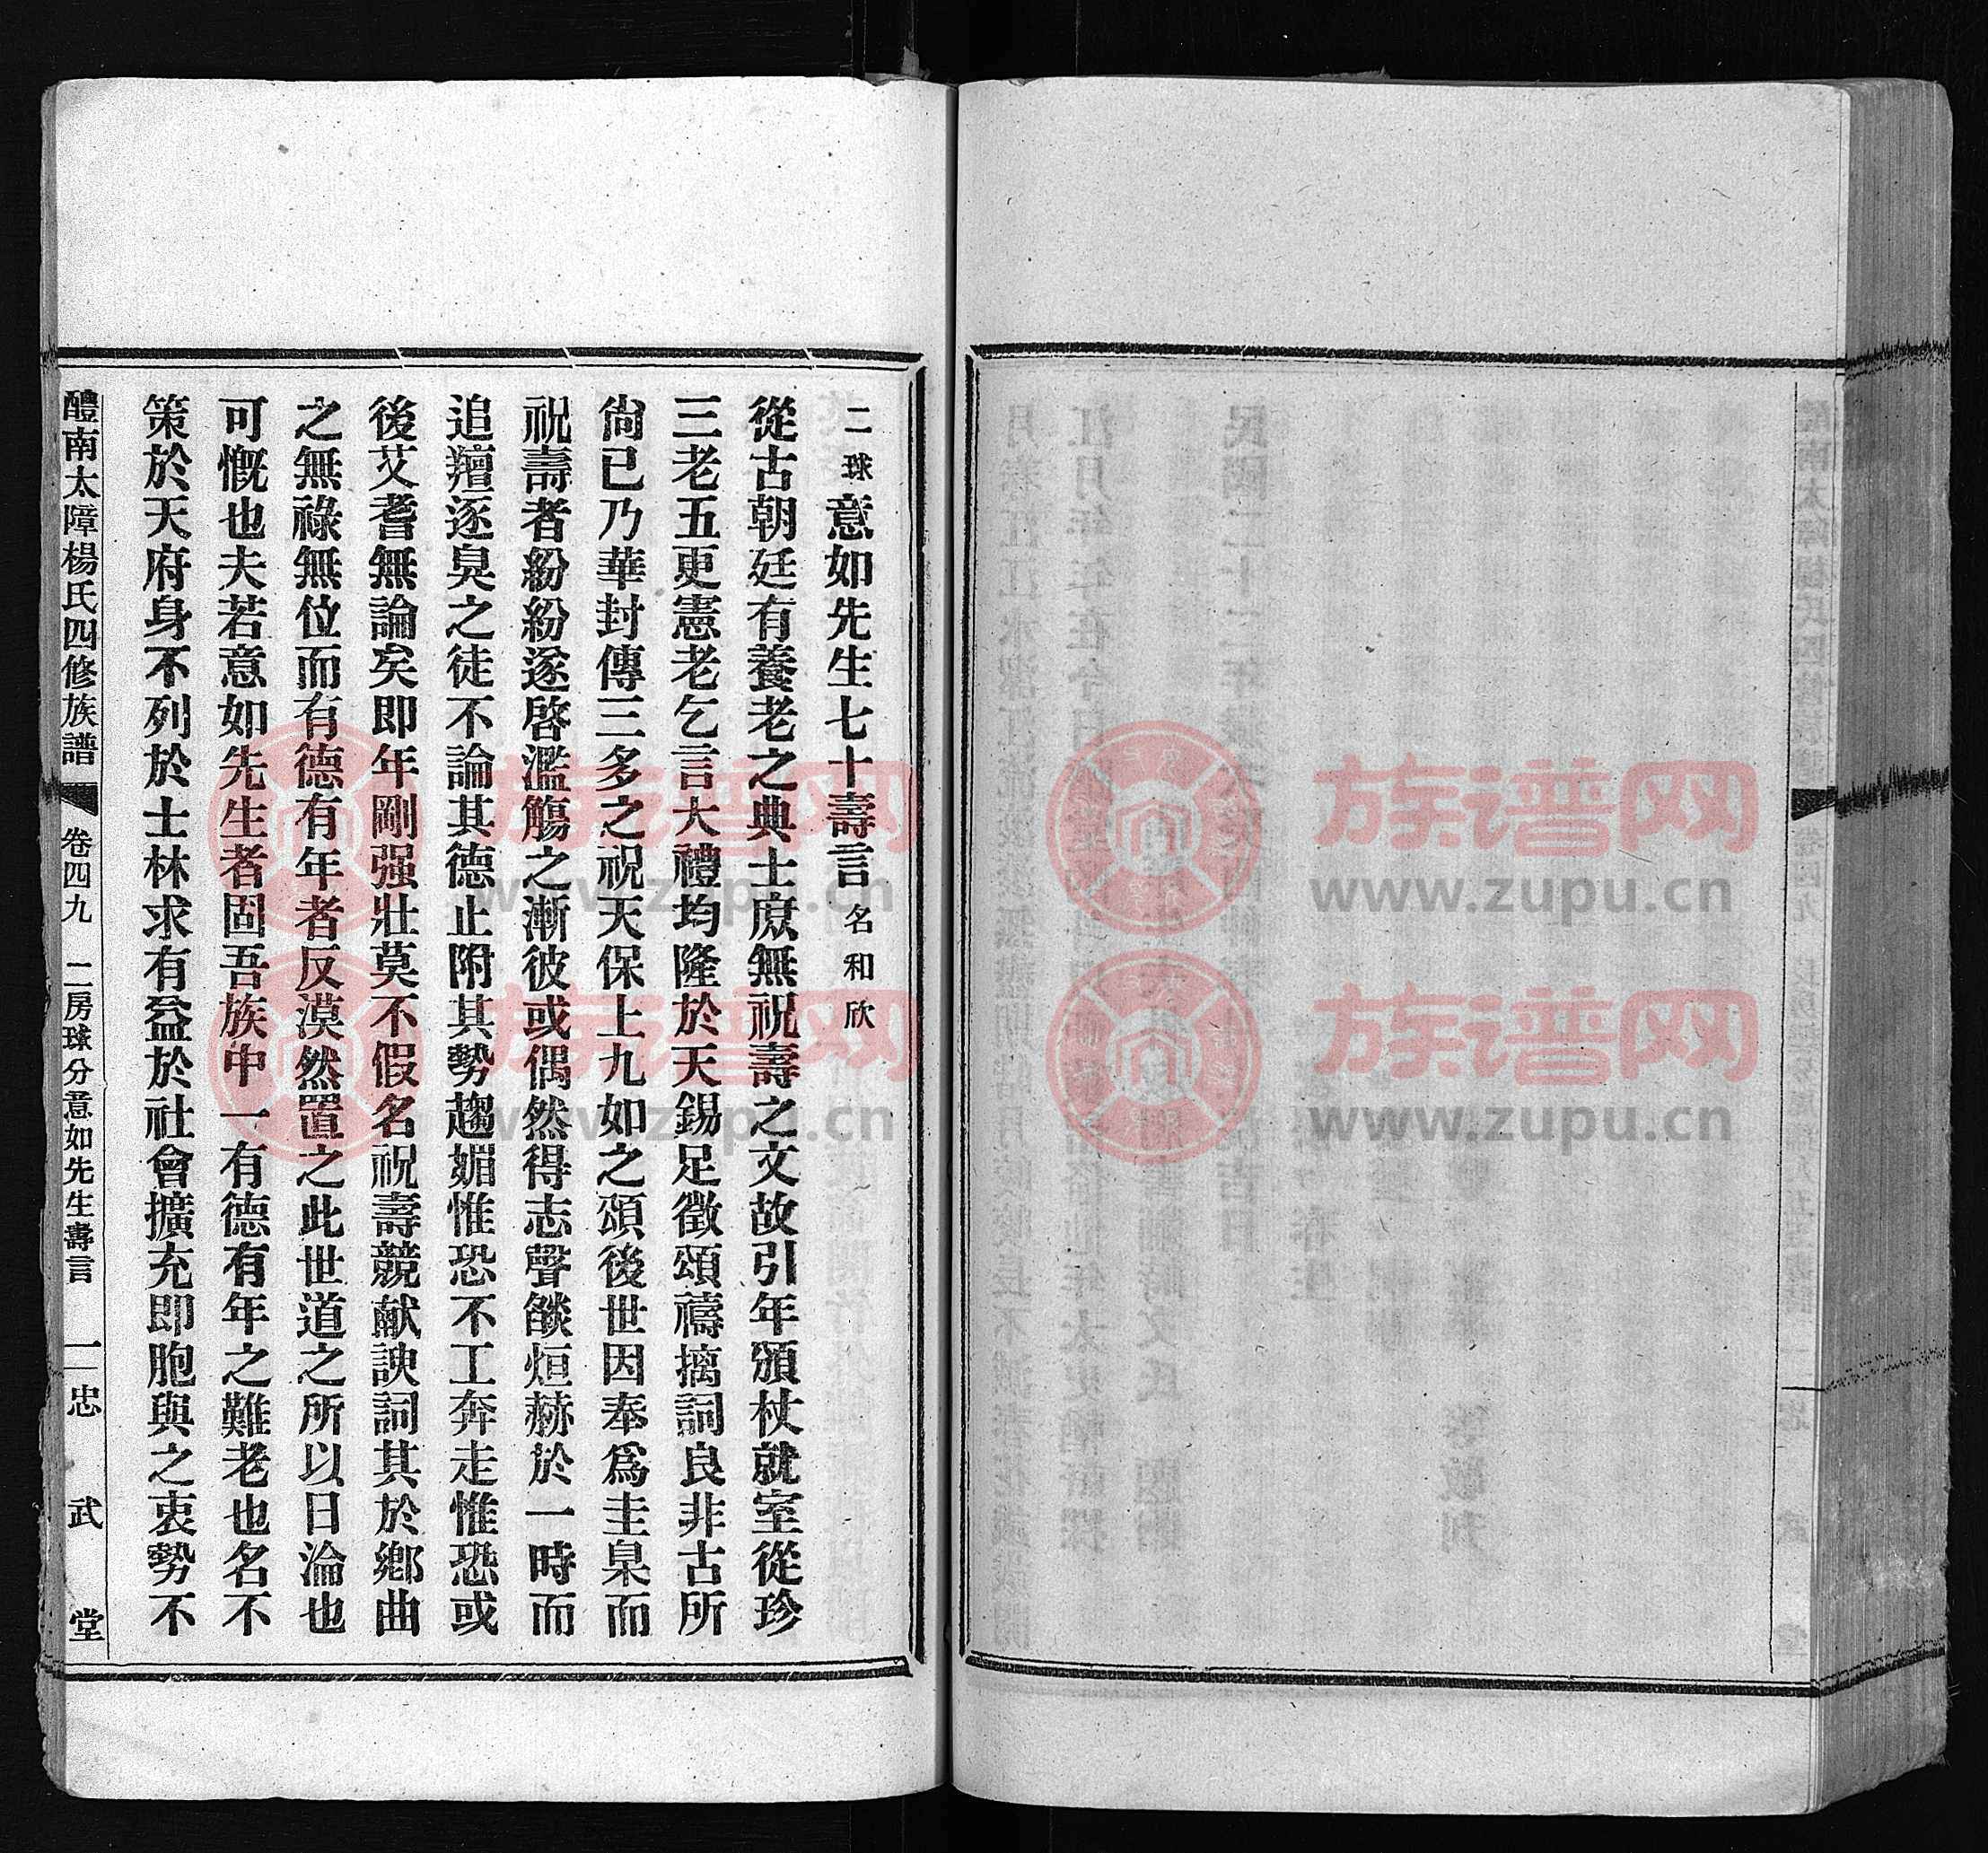 二球意如先生七十壽言名和欣
從古朝廷有養老之典士庶無祝壽之文故引年頒杖就室從珍
三老五更憲老乞言大禮均隆於天錫足徵頌禱摛詞良非古所
尙已乃華封傳三多之祝天保上九如之頌後世因奉爲圭臬而
祝壽者紛紛遂啓濫觴之漸彼或偶然得志聲燄烜赫於一時而
追羶逐臭之徒不論其德止附其勢趨媚惟恐不工奔走惟恐或
後艾耆無論矣即年剛强壯莫不假名祝壽競献諛詞其於鄕曲
之無祿無位而有德有年者反漠然置之此世道之所以日淪也
可慨也夫若意如先生者固吾族中一有德有年之難老也名不
策於天府身不列於士林求有益於社會擴充即胞與之衷勢不
醴南太障楊氏四修族譜 卷四九 二房球分意如先生壽言 一 忠武堂
族谱网
www.zupu.cn
族谱网
www.zupu.cn
族谱网
www.zupu.cn
族谱网
www.zupu.cn